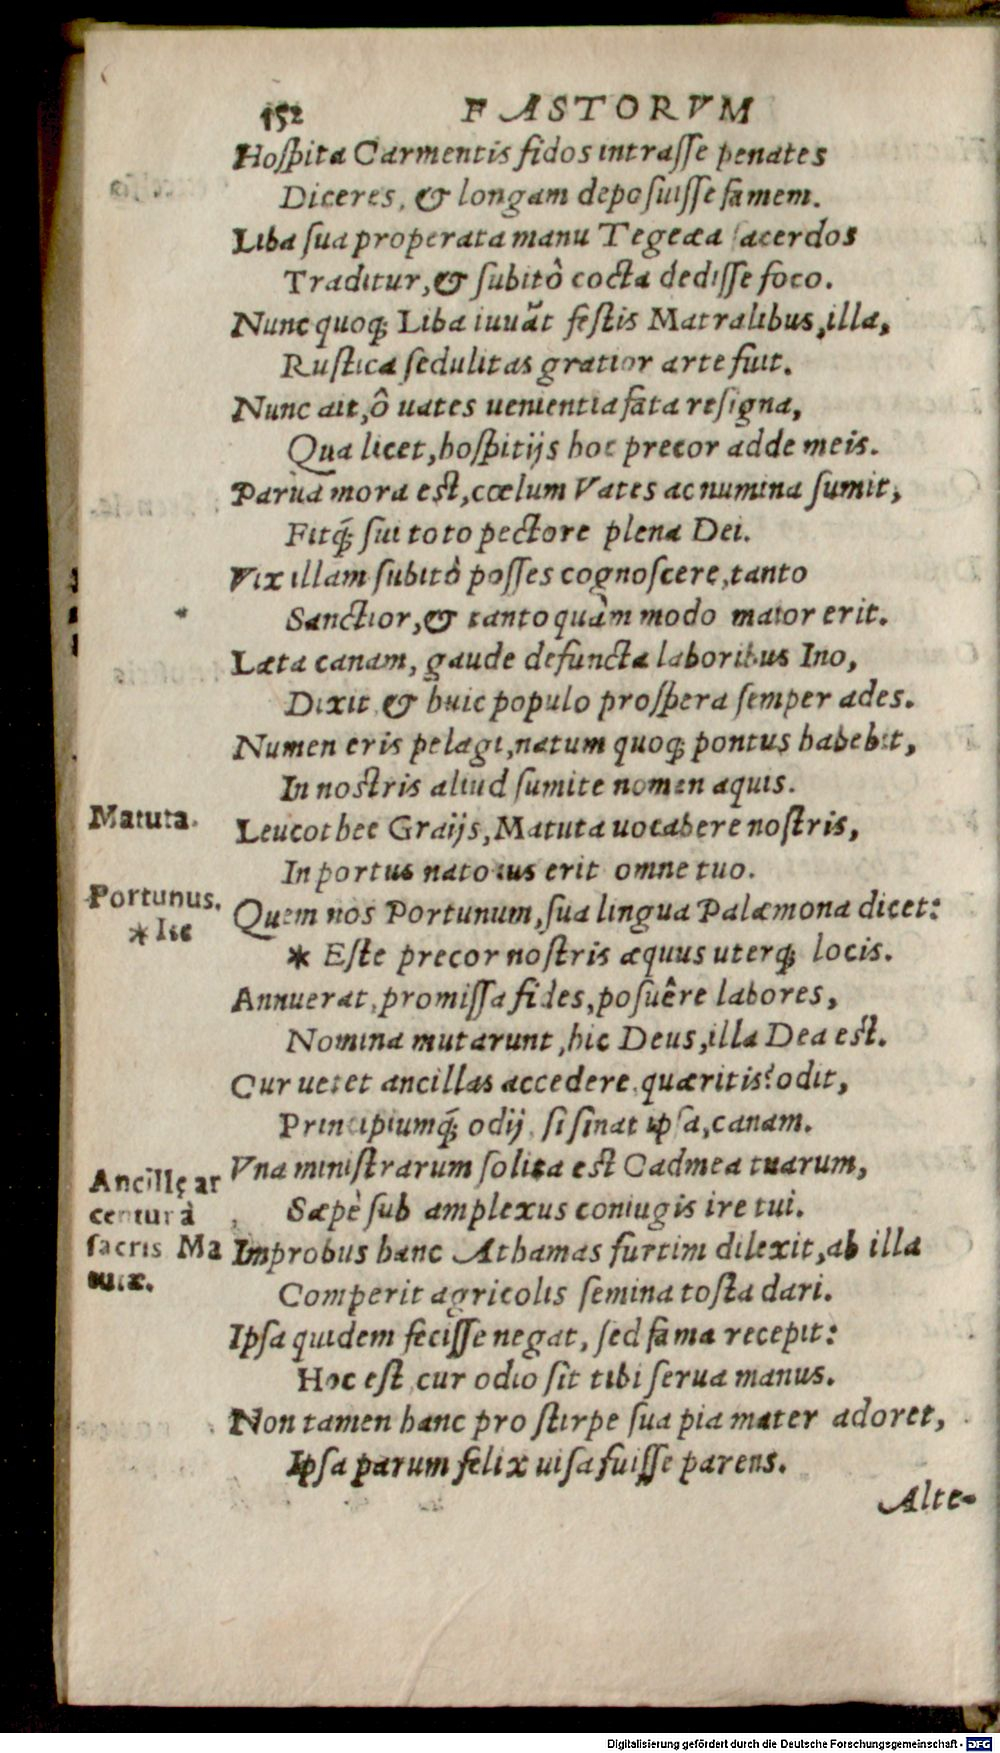 152 FASTORVM
Hoſpita Carmentis fidos intraſſe penates
Diceres, & longam depoſuiſſe famem.
Liba ſua properata manu Tegeæa ſacerdos
Traditur, & ſubitò cocta dediſſe foco.
Nunc quoq; Liba iuuãt feſtis Matralibus, illa,
Ruſtica ſedulitas gratior arte fuit.
Nunc ait, ô uates uenientia fata reſigna,
Qua licet, hoſpitijs hoc precor adde meis.
Parua mora est, cœlum Vates ac numina ſumit,
Fitq́; ſui toto pectore plena Dei.
Vix illam ſubitò poſſes cognoſcere, tanto
Sanctior, & tanto quàm modo maior erit.
Læta canam, gaude defuncta laboribus Ino,
Dixit, & huic populo proſpera ſemper ades.
Numen eris pelagi, natum quoq; pontus habebit,
In nostris aliud ſumite nomen aquis.
Matuta.
Leucothee Graijs, Matuta uocabere noſtris,
In portus nato ius erit omne tuo.
Portunus.
Quem nos Portunum, ſua lingua Palæmona dicet:
* Ite
* Eſte precor noſtris æquus uterq; locis.
Annuerat, promiſſa fides, poſuêre labores,
Nomina mutarunt, hic Deus, illa Dea eſt.
Cur uetet ancillas accedere, quæritis? odit,
Principiumq́; odij, ſi ſinat ipſa, canam.
Ancillę ar
Vna miniſtrarum ſolita est Cadmea tuarum,
centur à
Sæpè ſub amplexus coniugis ire tui.
ſacris Ma
Improbus hanc Athamas furtim dilexit, ab illa
tutæ.
Comperit agricolis ſemina toſta dari.
Ipſa quidem feciſſe negat, ſed fama recepit:
Hoc eſt, cur odio ſit tibi ſerua manus.
Non tamen hanc pro ſtirpe ſua pia mater adoret,
Ipſa parum felix uiſa fuiſſe parens.
Alte-
Digitalisierung gefördert durch die Deutsche Forschungsgemeinschaft - DFG